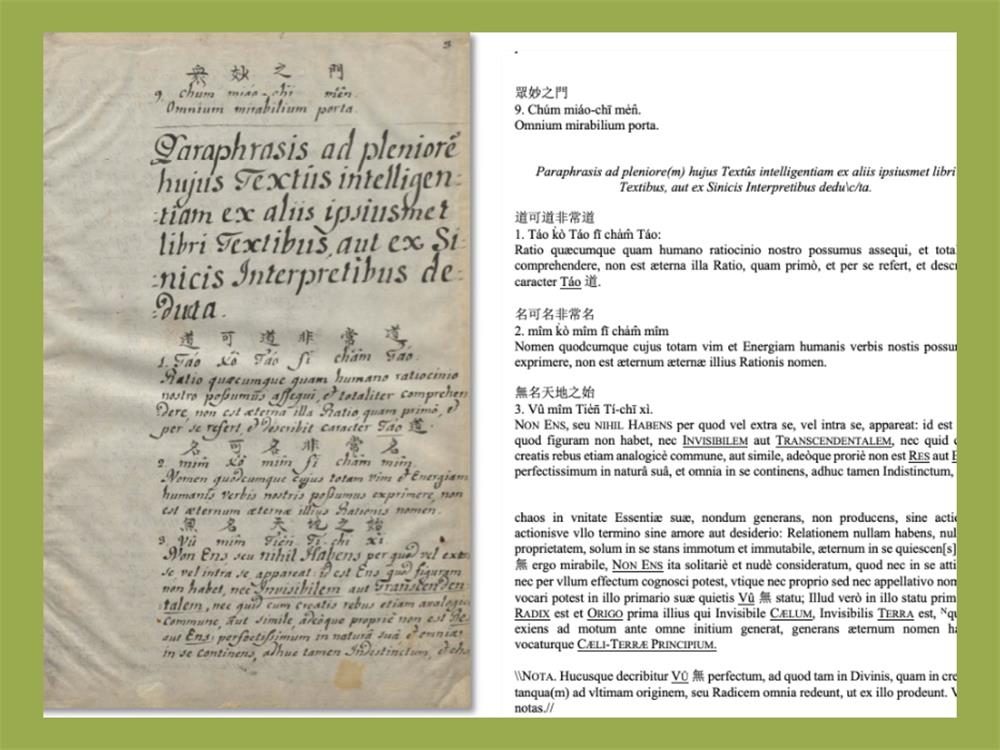 3
衆 妙 之 門
9. chúm miáo-chī mèn.
Omnium mirabilium porta.
Paraphrasis ad pleniorē
hujus Textûs intelligen=
=tiam ex aliis ipsiusmet
libri Textibus, aut ex Si=
=nicis Interpretibus de=
=ducta.
道 可 道 非 常 道
1. Táo kò Táo fī chám Táo:
Ratio quæcumque quam humano ratiocinio
nostro possumus assequi, et totaliter comprehen
dere, non est æterna illa Ratio, quam primò, et
per se refert, et describit caracter Táo 道.
名 可 名 非 常 名
2. mîm kò mîm fī chám mîm.
Nomen quodcumque cujus totam vim et Energiam
humanis verbis nostris possumus exprimere, non
est æternum æternæ illius Rationis nomen.
無 名 天 地 之 始
3. Vû mîm Tiēn Tí-chī xì.
Non Ens seu nihil Habens per quod vel extra
se, vel intra se appareat: id est Ens quod figuram
non habet, nec Invisibilem aut Transcenden=
talem, nec quid cum creatis rebus etiam analogicè
commune, aut simile, adeòque propriè non est Res
aut Ens: perfectissimum in naturâ suâ et omnia
in se continens, adhuc tamen Indistinctum, et cha
眾妙之門
9. Chúm miáo-chī mèn̂.
Omnium mirabilium porta.
Paraphrasis ad pleniore(m) hujus Textûs intelligentiam ex aliis ipsiusmet libri
Textibus, aut ex Sinicis Interpretibus dedu\c/ta.
道可道非常道
1. Táo kò Táo fī chám̀ Táo:
Ratio quæcumque quam humano ratiocinio nostro possumus assequi, et tota
comprehendere, non est æterna illa Ratio, quam primò, et per se refert, et descr
caracter Táo 道.
名可名非常名
2. mîm kò mîm fī chám̀ mîm
Nomen quodcumque cujus totam vim et Energiam humanis verbis nostis possu
exprimere, non est æternum æternæ illius Rationis nomen.
無名天地之始
3. Vû mîm Tiēn̄ Tí-chī xì.
NON ENS, seu NIHIL HABENS per quod vel extra se, vel intra se, appareat: id est
quod figuram non habet, nec INVISIBILEM aut TRANSCENDENTALEM, nec quid c
creatis rebus etiam analogicè commune, aut simile, adeòque proriè non est RES aut E
perfectissimum in naturâ suâ, et omnia in se continens, adhuc tamen Indistinctum,
chaos in vnitate Essentiæ suæ, nondum generans, non producens, sine actio
actionisve vllo termino sine amore aut desiderio: Relationem nullam habens, nul
proprietatem, solum in se stans immotum et immutabile, æternum in se quiescen[s]
無 ergo mirabile, NON ENS ita solitariè et nudè consideratum, quod nec in se atti
nec per vllum effectum cognosci potest, vtique nec proprio sed nec appellativo nom
vocari potest in illo primario suæ quietis Vû 無 statu; Illud verò in illo statu prim
RADIX est et ORIGO prima illius qui Invisibile CÆLUM, Invisibilis TERRA est, ᴺqu
exiens ad motum ante omne initium generat, generans æternum nomen ha
vocaturque CÆLI-TERRÆ PRINCIPIUM.
\\NOTA. Hucusque decribitur Vû 無 perfectum, ad quod tam in Divinis, quam in cre
tanqua(m) ad vltimam originem, seu Radicem omnia redeunt, ut ex illo prodeunt. V
notas.//